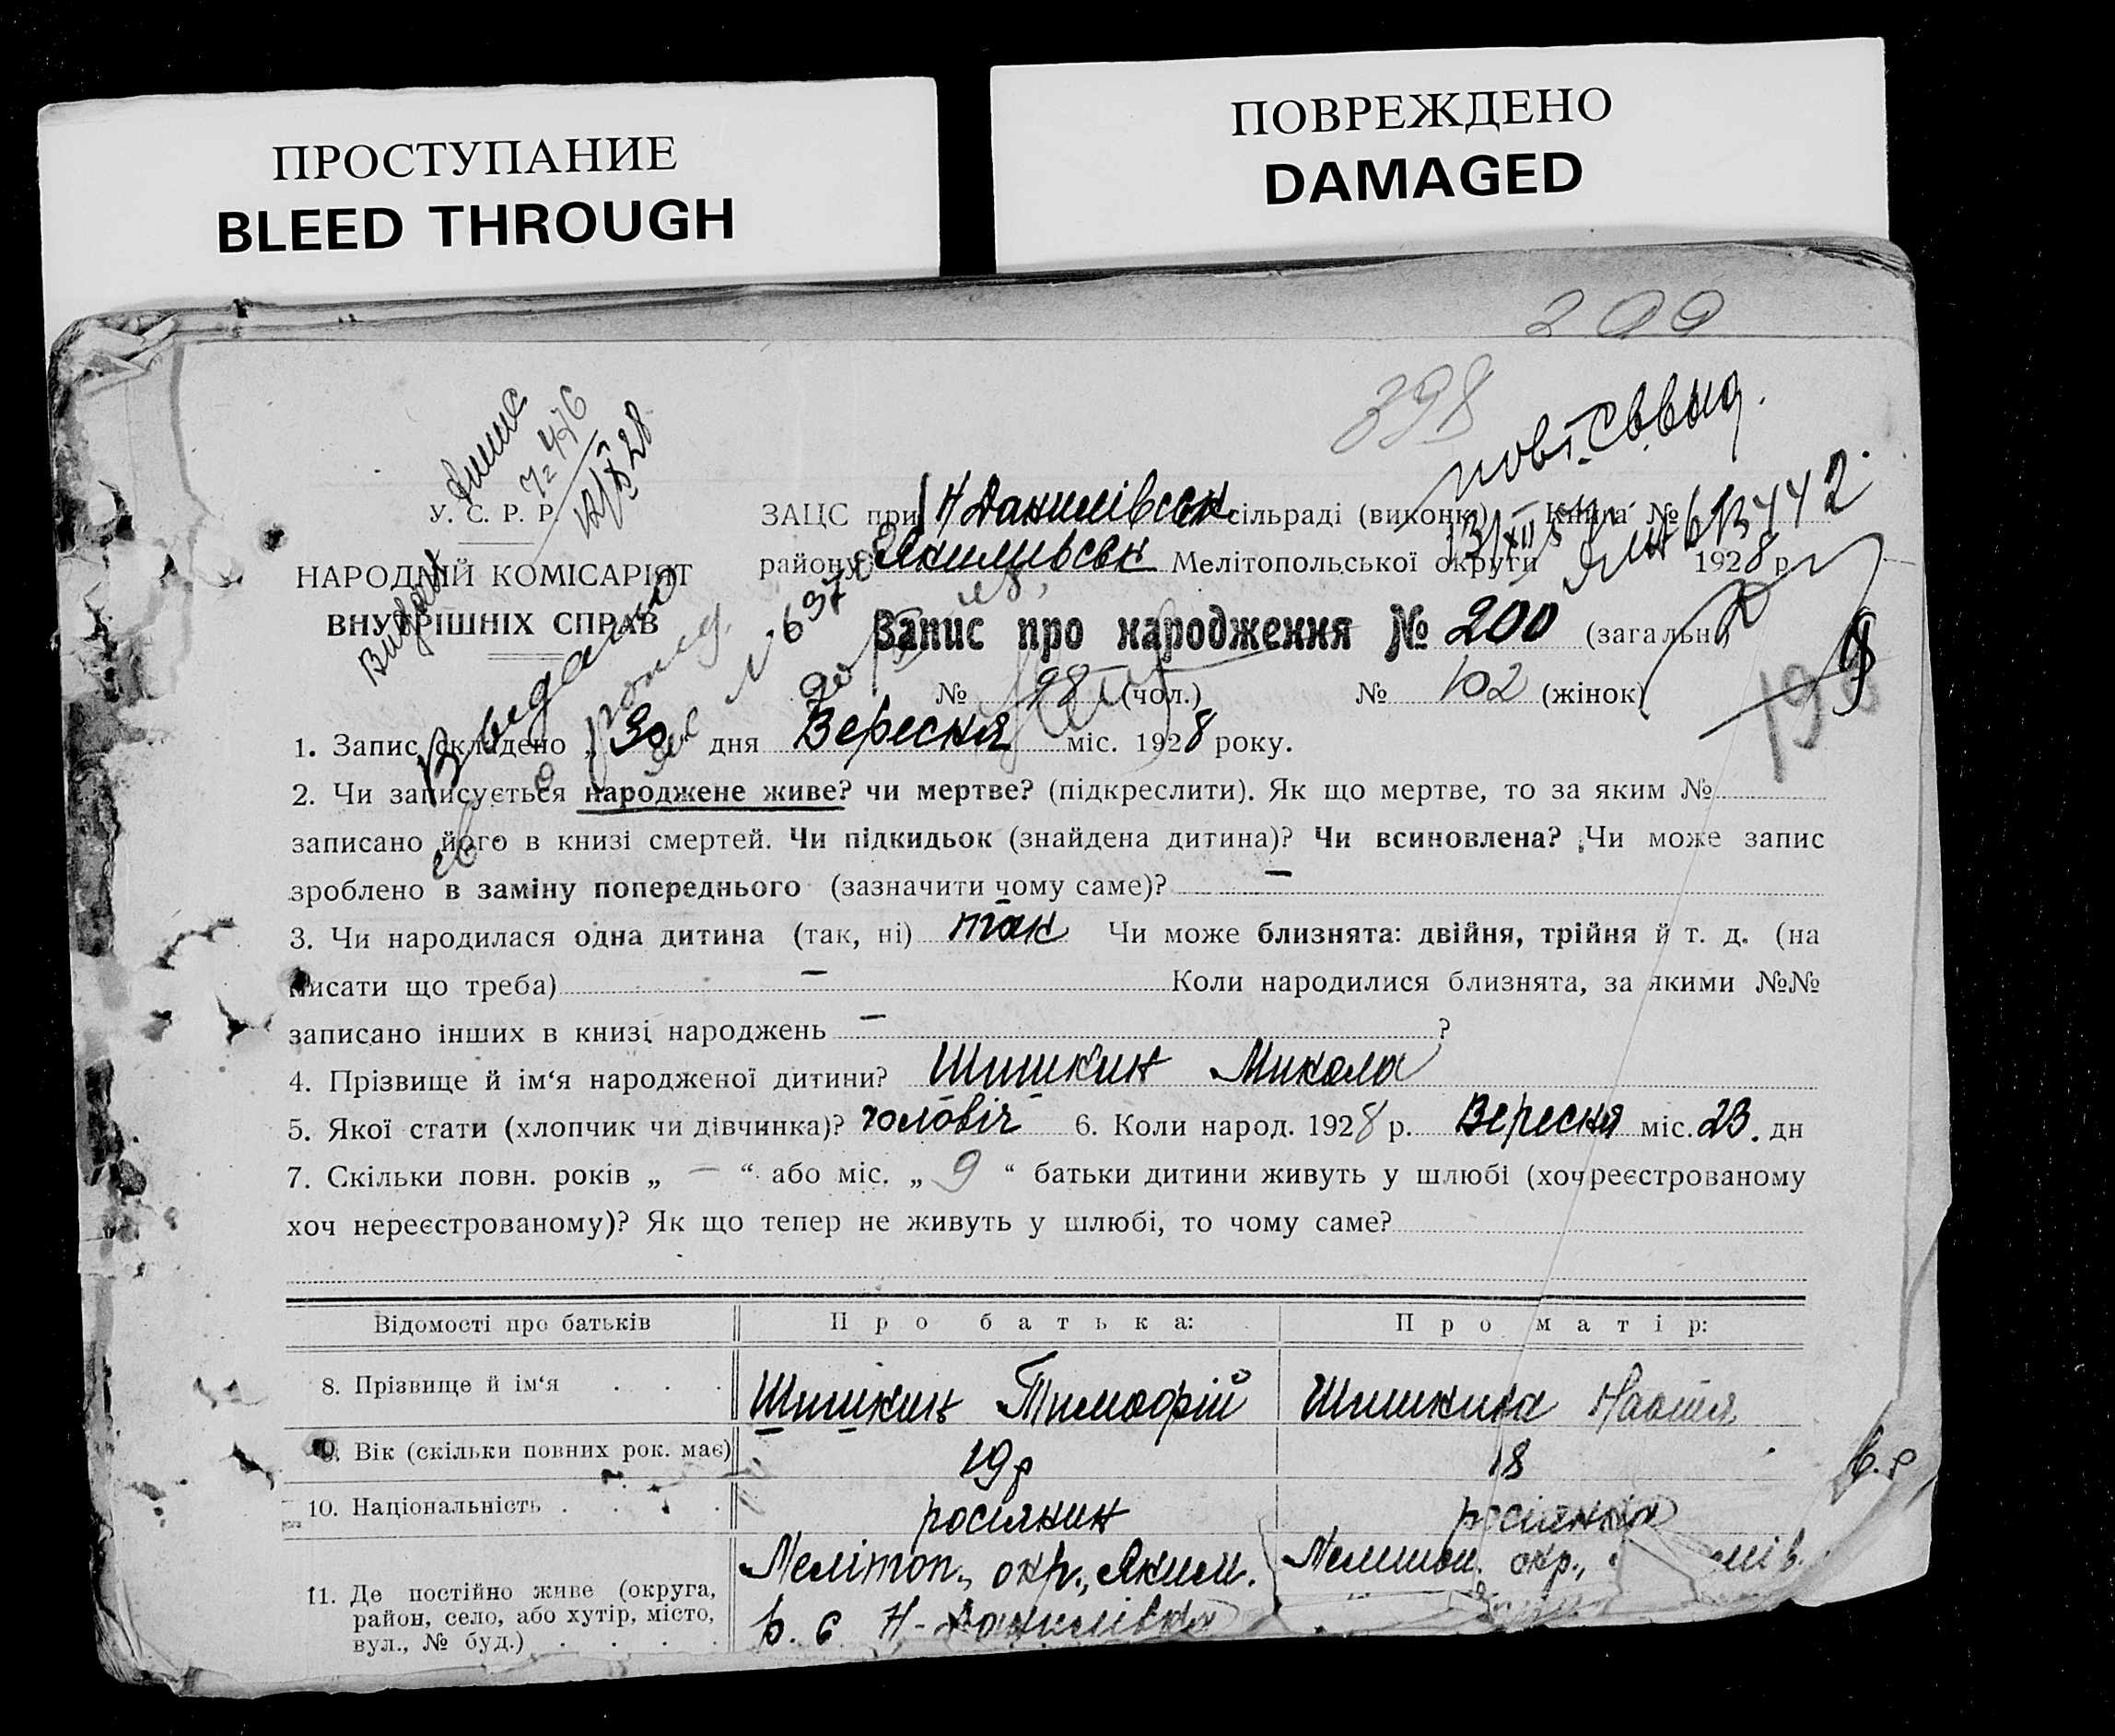 ПРОСТУПАНИЕ
BLEED THROUGH
ПОВРЕЖДЕНО
DAMAGED
200
398
У. С. Р. Р.
НАРОДНІЙ КОМІСАРІЯТ
ВНУТРІШНІХ СПРАВ
ЗАЦС при Н Данилівськ сільраді (виконк) Книга №
району Якимівськ Мелітопольської округи 1928 р
Запис про народження № 200 (загальн.)
№ 98 (чол.) № 102 (жінок)
1. Запис складено „30“ дня Вересня міс. 1928 року.
2. Чи записується народжене живе? чи мертве? (підкреслити). Як що мертве, то за яким №
записано його в книзі смертей. Чи підкидьок (знайдена дитина)? Чи всиновлена? Чи може запис
зроблено в заміну попереднього (зазначити чому саме)? —
3. Чи народилася одна дитина (так, ні) так Чи може близнята: двійня, трійня й т. д. (на
писати що треба) — Коли народилися близнята, за якими №№
записано інших в книзі народжень — ?
4. Прізвище й ім‘я народженої дитини? Шишкин Микола
5. Якої стати (хлопчик чи дівчинка)? чоловіч 6. Коли народ. 1928 р. Вересня міс. 23. дн
7. Скільки повн. років „ — “ або міс. „ 9 “ батьки дитини живуть у шлюбі (хоч реєстрованому
хоч нереєстрованому)? Як що тепер не живуть у шлюбі, то чому саме?
Відомості про батьків Про батька: Про матір:
8. Прізвище й ім‘я . . . Шишкин Тимофрій Шишкина Настя
9. Вік (скільки повних рок. має) 19 р 18
10. Національність . . . . росіянин росіянка
11. Де постійно живе (округа, район, село, або хутір, місто, вул., № буд.) . . . . Мелітоп., окр., Яким. р. с Н-Данилівка Мелитоп. окр.,